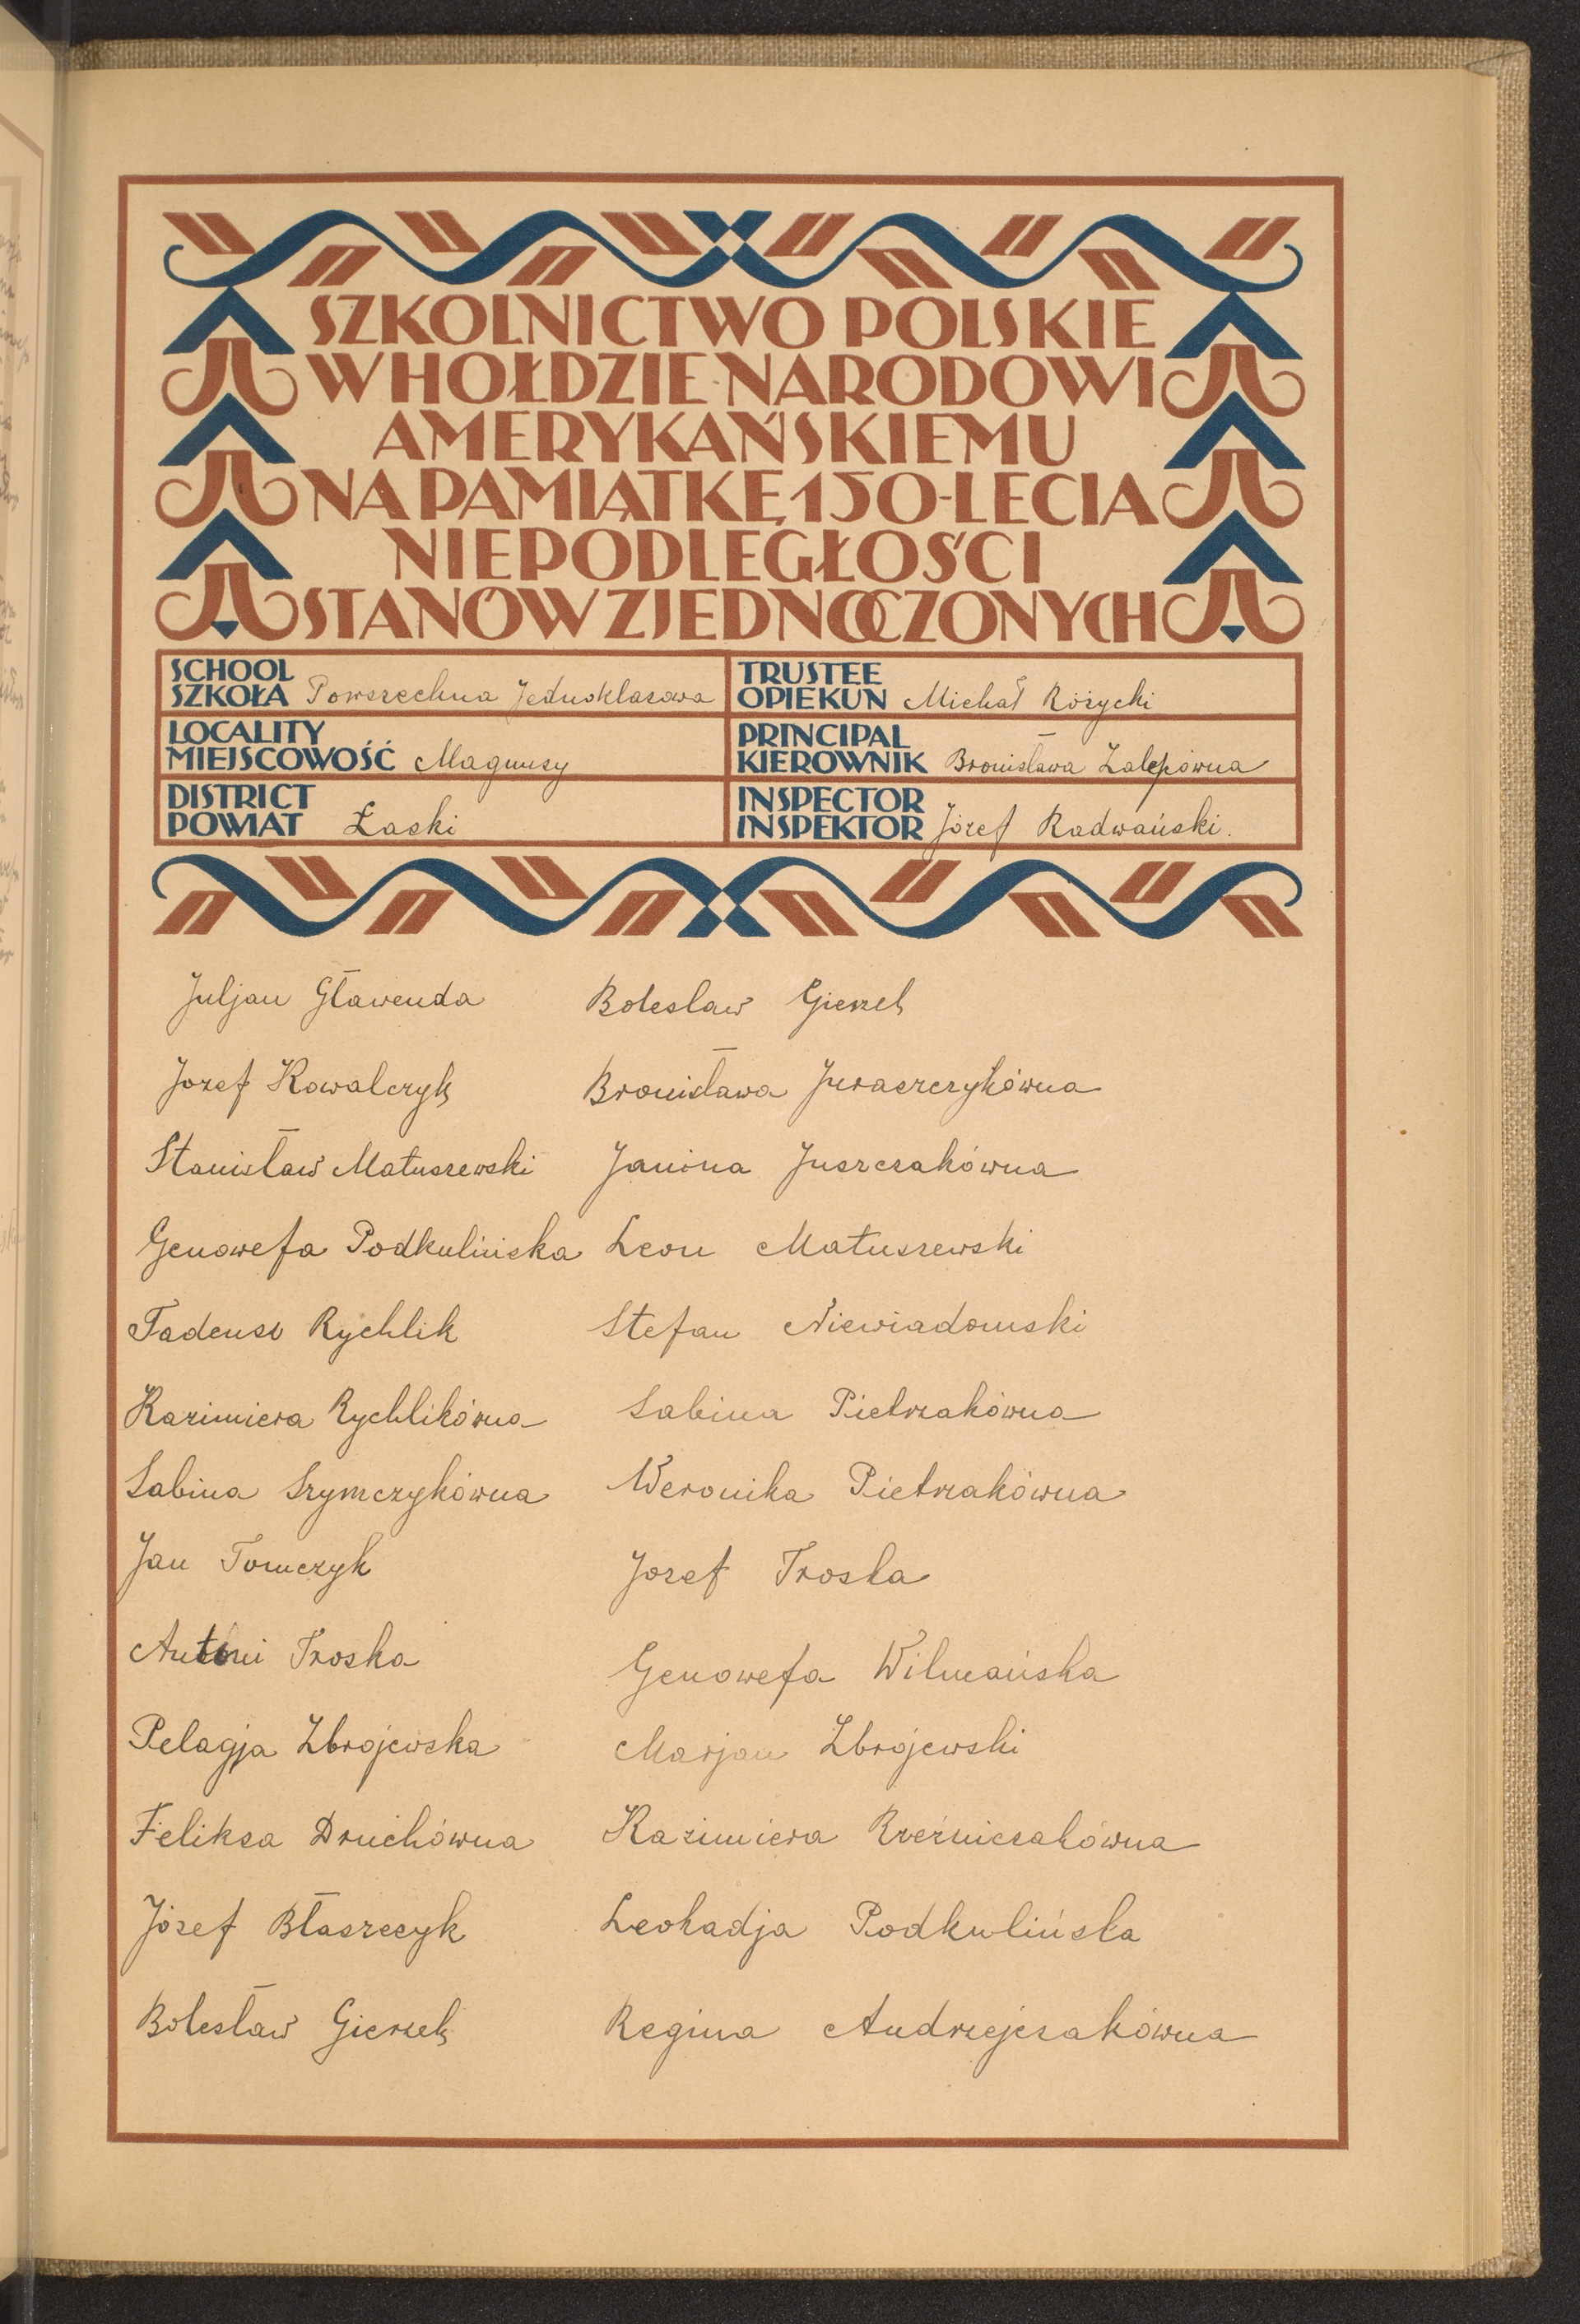 SZKOLNICTWO POLSKIE
W HOŁDZIE NARODOWI
AMERYKAŃSKIEMU
NA PAMIĄTKĘ 150-LECIA
NIEPODLEGŁOŚCI
STANÓW ZJEDNOCZONYCH
SCHOOL
SZKOŁA Powszechna Jednoklasowa
TRUSTEE
OPIEKUN Michał Różycki
LOCALITY
MIEJSCOWOŚĆ Magnusy
PRINCIPAL
KIEROWNIK Bronisława Zalepówna
DISTRICT
POWIAT Łaski
INSPECTOR
INSPEKTOR Józef Radwański.
Juljan Gławenda
Józef Kowalczyk
Stanisław Matuszewski
Genowefa Podkulińska
Tadeusz Rychlik
Kazimiera Rychlikówna
Sabina Szymczykówna
Jan Tomczyk
Antoni Troska
Pelagja Zbrojewska
Feliksa Druchówna
Józef Błaszczyk
Bolesław Gierzek
Boleslaw Gierzek
Bronisława Juraszczykówna
Janina Juszczakówna
Leon Matuszewski
Stefan Niewiadomski
Sabina Pietrzakówna
Weronika Pietrzakówna
Jozef Troska
Genowefa Wilmańska
Marjan Zbrojewski
Kazimiera Rzeźniczakówna
Leokadja Podkulińska
Regina Andrzejczakówna